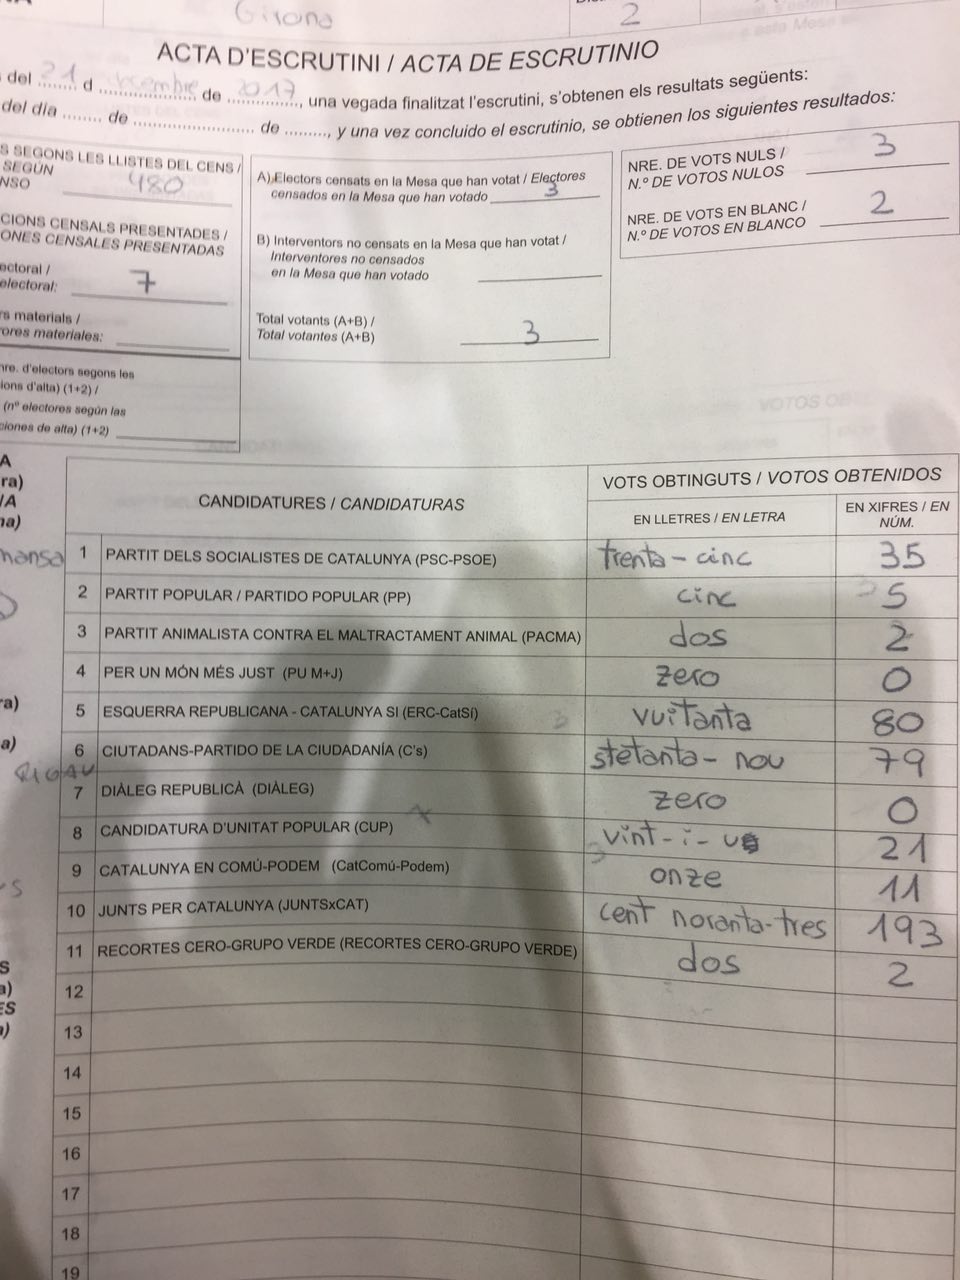 Girona
2
ACTA D'ESCRUTINI / ACTA DE ESCRUTINIO
del 21 d desembre de 2017, una vegada finalitzat l'escrutini, s'obtenen els resultats següents:
del día ........ de ........................ de ........., y una vez concluido el escrutinio, se obtienen los siguientes resultados:
S SEGONS LES LLISTES DEL CENS /
SEGÚN
NSO 480
CIONS CENSALS PRESENTADES /
ONES CENSALES PRESENTADAS
ectoral /
electoral: 7
rs materials /
ores materiales:
nre. d'electors segons les
ions d'alta) (1+2) /
(nº electores según las
ciones de alta) (1+2)
A) Electors censats en la Mesa que han votat / Electores
censados en la Mesa que han votado 3
B) Interventors no censats en la Mesa que han votat /
Interventores no censados
en la Mesa que han votado
Total votants (A+B) /
Total votantes (A+B) 3
NRE. DE VOTS NULS /
N.º DE VOTOS NULOS 3
NRE. DE VOTS EN BLANC /
N.º DE VOTOS EN BLANCO 2
CANDIDATURES / CANDIDATURAS
VOTS OBTINGUTS / VOTOS OBTENIDOS
EN LLETRES / EN LETRA
EN XIFRES / EN
NÚM.
1 PARTIT DELS SOCIALISTES DE CATALUNYA (PSC-PSOE) trenta-cinc 35
2 PARTIT POPULAR / PARTIDO POPULAR (PP) cinc 5
3 PARTIT ANIMALISTA CONTRA EL MALTRACTAMENT ANIMAL (PACMA) dos 2
4 PER UN MÓN MÉS JUST (PU M+J) zero 0
5 ESQUERRA REPUBLICANA - CATALUNYA SI (ERC-CatSí) vuitanta 80
6 CIUTADANS-PARTIDO DE LA CIUDADANÍA (C's) stetanta-nou 79
7 DIÀLEG REPUBLICÀ (DIÀLEG) zero 0
8 CANDIDATURA D'UNITAT POPULAR (CUP) vint-i-u 21
9 CATALUNYA EN COMÚ-PODEM (CatComú-Podem) onze 11
10 JUNTS PER CATALUNYA (JUNTSxCAT) cent noranta-tres 193
11 RECORTES CERO-GRUPO VERDE (RECORTES CERO-GRUPO VERDE) dos 2
12
13
14
15
16
17
18
19